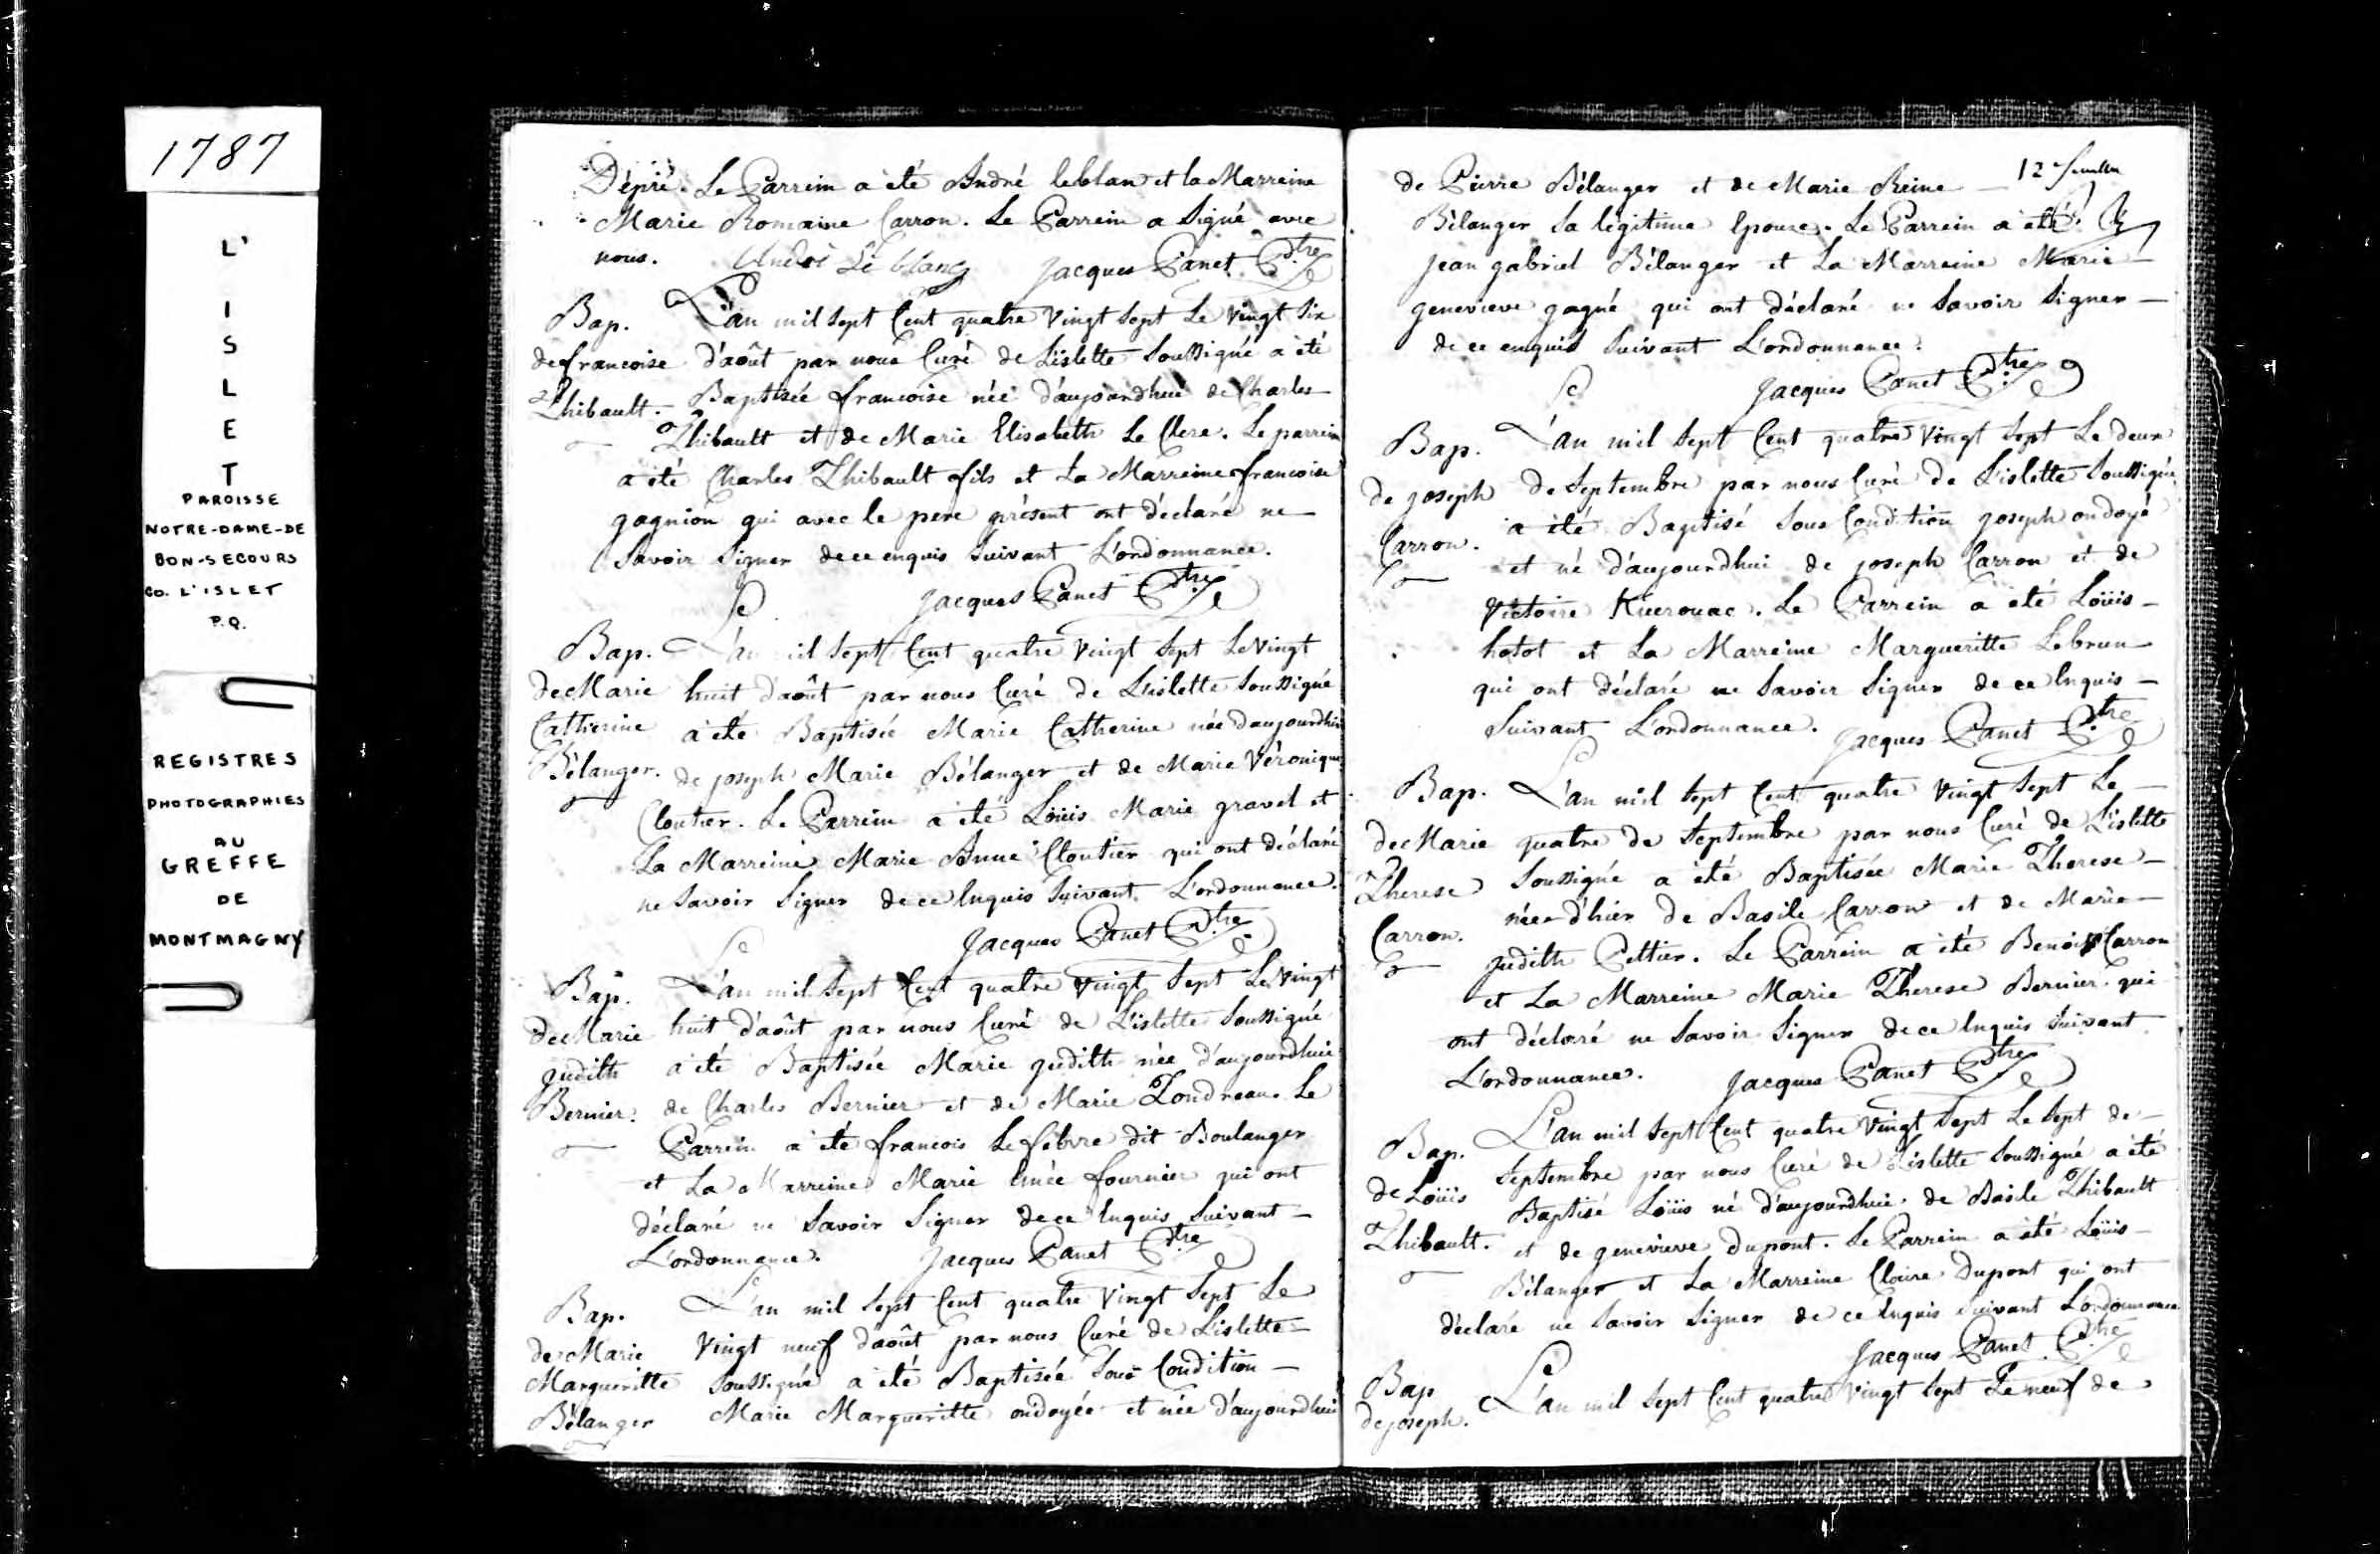 1787
L'
I
S
L
E
T
PAROISSE
NOTRE-DAME-DE
BON-SECOURS
CO. L'ISLET
P.Q.
REGISTRES
PHOTOGRAPHIES
AU
GREFFE
DE
MONTMAGNY
Dépré. Le Parrein a été André leblan et la Marreine
Marie Romaine Carron. Le Parrein a Signé avec
nous. André Le blanc Jacques Panet Ptre
Bap. L'an mil Sept Cent quatre Vingt Sept Le Vingt Six
de francoise d'août par nous Curé de Lislette Soussigné a été
Thibault. Baptisée francoise née d'aujourdhui de Charles
Thibault et de Marie Elisabeth Le Clerc. Le parrein
a été Charles Thibault fils et La Marreine francoise
gagnion qui avec le pere présent ont déclaré ne
Savoir Signer de ce enquis Suivant L'ordonnance.
Jacques Panet Ptre
Bap. L'an mil Sept Cent quatre Vingt Sept Le Vingt
de Marie huit d'août par nous Curé de L'islette Soussigné
Catherine a été Baptisée Marie Catherine née d'aujourdhui
Bélanger. de joseph Marie Bélanger et de Marie Véronique
Cloutier. Le Parrein a été Loüis Marie gravel et
La Marreine Marie Anne Cloutier qui ont déclaré
ne Savoir Signer de ce Enquis Suivant L'ordonnance.
Jacques Panet Ptre
Bap. L'an mil Sept Cent quatre Vingt Sept Le Vingt
de Marie huit d'août par nous Curé de L'islette Soussigné
judith a été Baptisée Marie judith née d'aujourdhui
Bernier. de Charles Bernier et de Marie Tondreau. Le
Parrein a été francois Lefebvre dit Boulanger
et La Marreine Marie fournier qui ont
déclaré ne Savoir Signer de ce Enquis Suivant
L'ordonnance. Jacques Panet Ptre
Bap. L'an mil Sept Cent quatre Vingt Sept Le
de Marie Vingt neuf d'août par nous Curé de Lislette
Margueritte Soussigné a été Baptisée Sous Condition
Bélanger Marie Margueritte ondoyée et née d'aujourdhui
12
de Pierre Bélanger et de Marie Reine
Bélanger Sa légitime Epouse. Le Parrein a été
jean gabriel Bélanger et La Marreine Marie
genevieve gagné qui ont déclaré ne Savoir Signer
de ce enquis Suivant L'ordonnance.
Jacques Panet Ptre
Bap. L'an mil Sept Cent quatre Vingt Sept Le deux
de joseph de Septembre par nous Curé de L'islette Soussigné
Carron. a été Baptisé Sous Condition joseph ondoyé
et né d'aujourdhui de joseph Carron et de
Victoire Kuerouac. Le Parrein a été Loüis
hotot et La Marreine Margueritte Lebrun
qui ont déclaré ne Savoir Signer de ce Enquis
Suivant L'ordonnance. Jacques Panet Ptre
Bap. L'an mil Sept Cent quatre Vingt Sept Le
de Marie quatre de Septembre par nous Curé de L'islette
Therese Soussigné a été Baptisée Marie Therese
Carron. née d'hier de Basile Carron et de Marie
judith Peltier. Le Parrein a été Benoist Carron
et La Marreine Marie Therese Bernier qui
ont déclaré ne Savoir Signer de ce Enquis Suivant
L'ordonnance. Jacques Panet Ptre
Bap. L'an mil Sept Cent quatre Vingt Sept Le Sept de
Septembre par nous Curé de Lislette Soussigné a été
de Loüis Baptisé Loüis né d'aujourdhui de Basile Thibault
Thibault. et de genevieve Dupont. Le Parrein a été Loüis
Bélanger et La Marreine Claire Dupont qui ont
déclaré ne Savoir Signer de ce Enquis Suivant L'ordonnance
Jacques Panet Ptre
Bap L'an mil Sept Cent quatre Vingt Sept Le neuf de
de joseph.